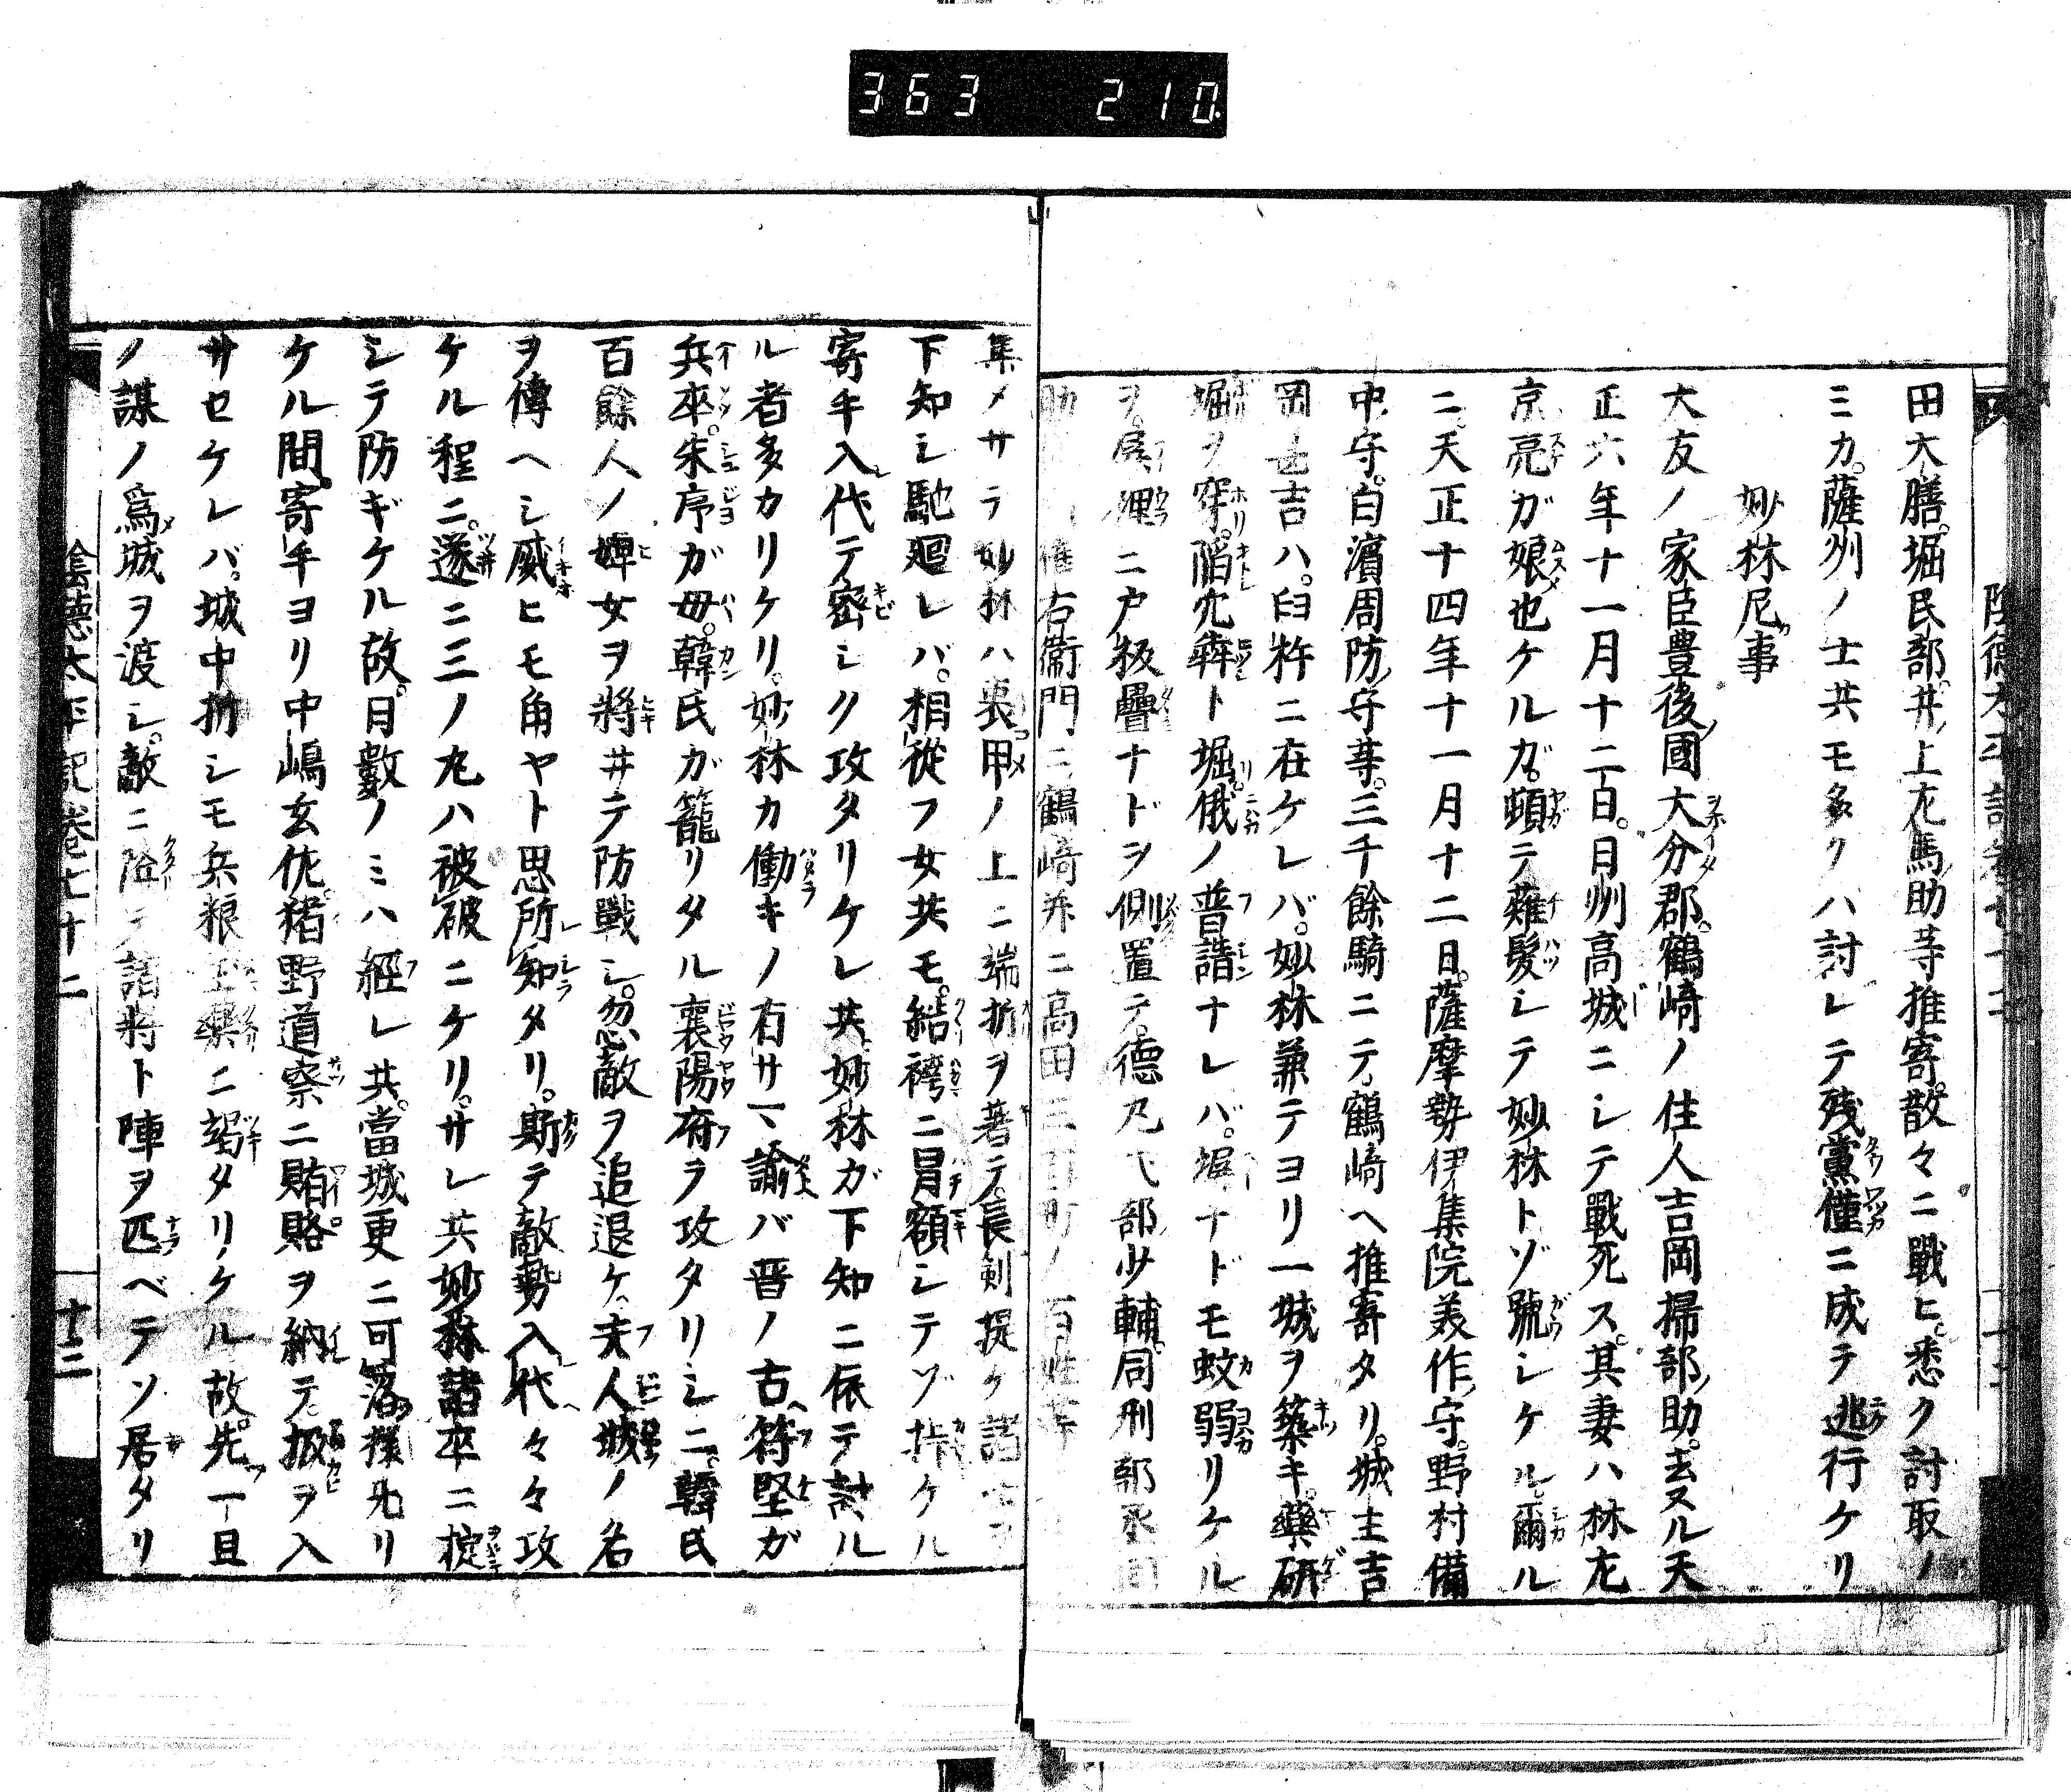 363 210
田大膳。堀民部。井上左馬助等推寄。散々ニ戰ヒ。悉ク討取ノ
ミカ。薩州ノ士共モ多クハ討レテ残黨僅ニ成テ逃行ケリ
妙林尼事
大友ノ家臣豊後國大分郡。鶴崎ノ住人吉岡掃部助。去スル天
正六年十一月十二日。日州高城ニシテ戰死ス。其妻ハ林左
京亮ガ娘也ケルガ。頓テ薙髮シテ妙林トゾ號シケル。爾ル
ニ。天正十四年十一月十二日。薩摩勢伊集院美作守。野村備
中守。白濱周防守等。三千餘騎ニテ鶴崎ヘ推寄タリ。城主吉
岡 吉ハ。臼杵ニ在ケレバ。妙林兼テヨリ一城ヲ築キ。藥研
堀ヲ穿。陷穴 ト堀。俄ノ普請ナレバ。 ナドモ蚊弱リケル
ヲ。 裡ニ戸板疊ナドヲ側置テ。德丸式部少輔。同刑部丞同
助 右衞門ニ鶴崎并ニ高田三百町ノ百姓等
集メサテ妙林ハ裹甲ノ上ニ端折ヲ著テ。長剣提ケ諸
下知シ馳廻レバ。相從フ女共モ。結袴ニ冒額シテゾ ケル
寄手入代テ密シク攻タリケレ共。妙林ガ下知ニ依テ討ル
ル者多カリケリ。妙林カ働キノ有サマ諭バ晋ノ古苻堅ガ
兵卒。朱序ガ母。韓氏ガ籠リタル襄陽府ヲ攻タリシニ。韓氏
百餘人ノ婢女ヲ將井テ防戰シ。忽敵ヲ追退ケ。夫人城ノ名
ヲ傳ヘシ威ヒモ角ヤト思所知タリ。斯テ敵勢入代々々攻
ケル程ニ。遂ニ三ノ丸ハ被破ニケリ。サレ共妙林諸卒ニ掟
シテ防ギケル故。月數ノミハ經レ共。當城更ニ可落樣無リ
ケル間。寄手ヨリ中嶋玄佐。猪野道察ニ賄賂ヲ納テ。扱ヲ入
サセケレバ。城中折シモ兵粮玉藥ニ竭タリケル故。先一旦
ノ謀ノ爲城ヲ渡シ。敵ニ降テ諸將ト陣ヲ匹ベテソ居タリ
陰德太平記卷七十二 十三